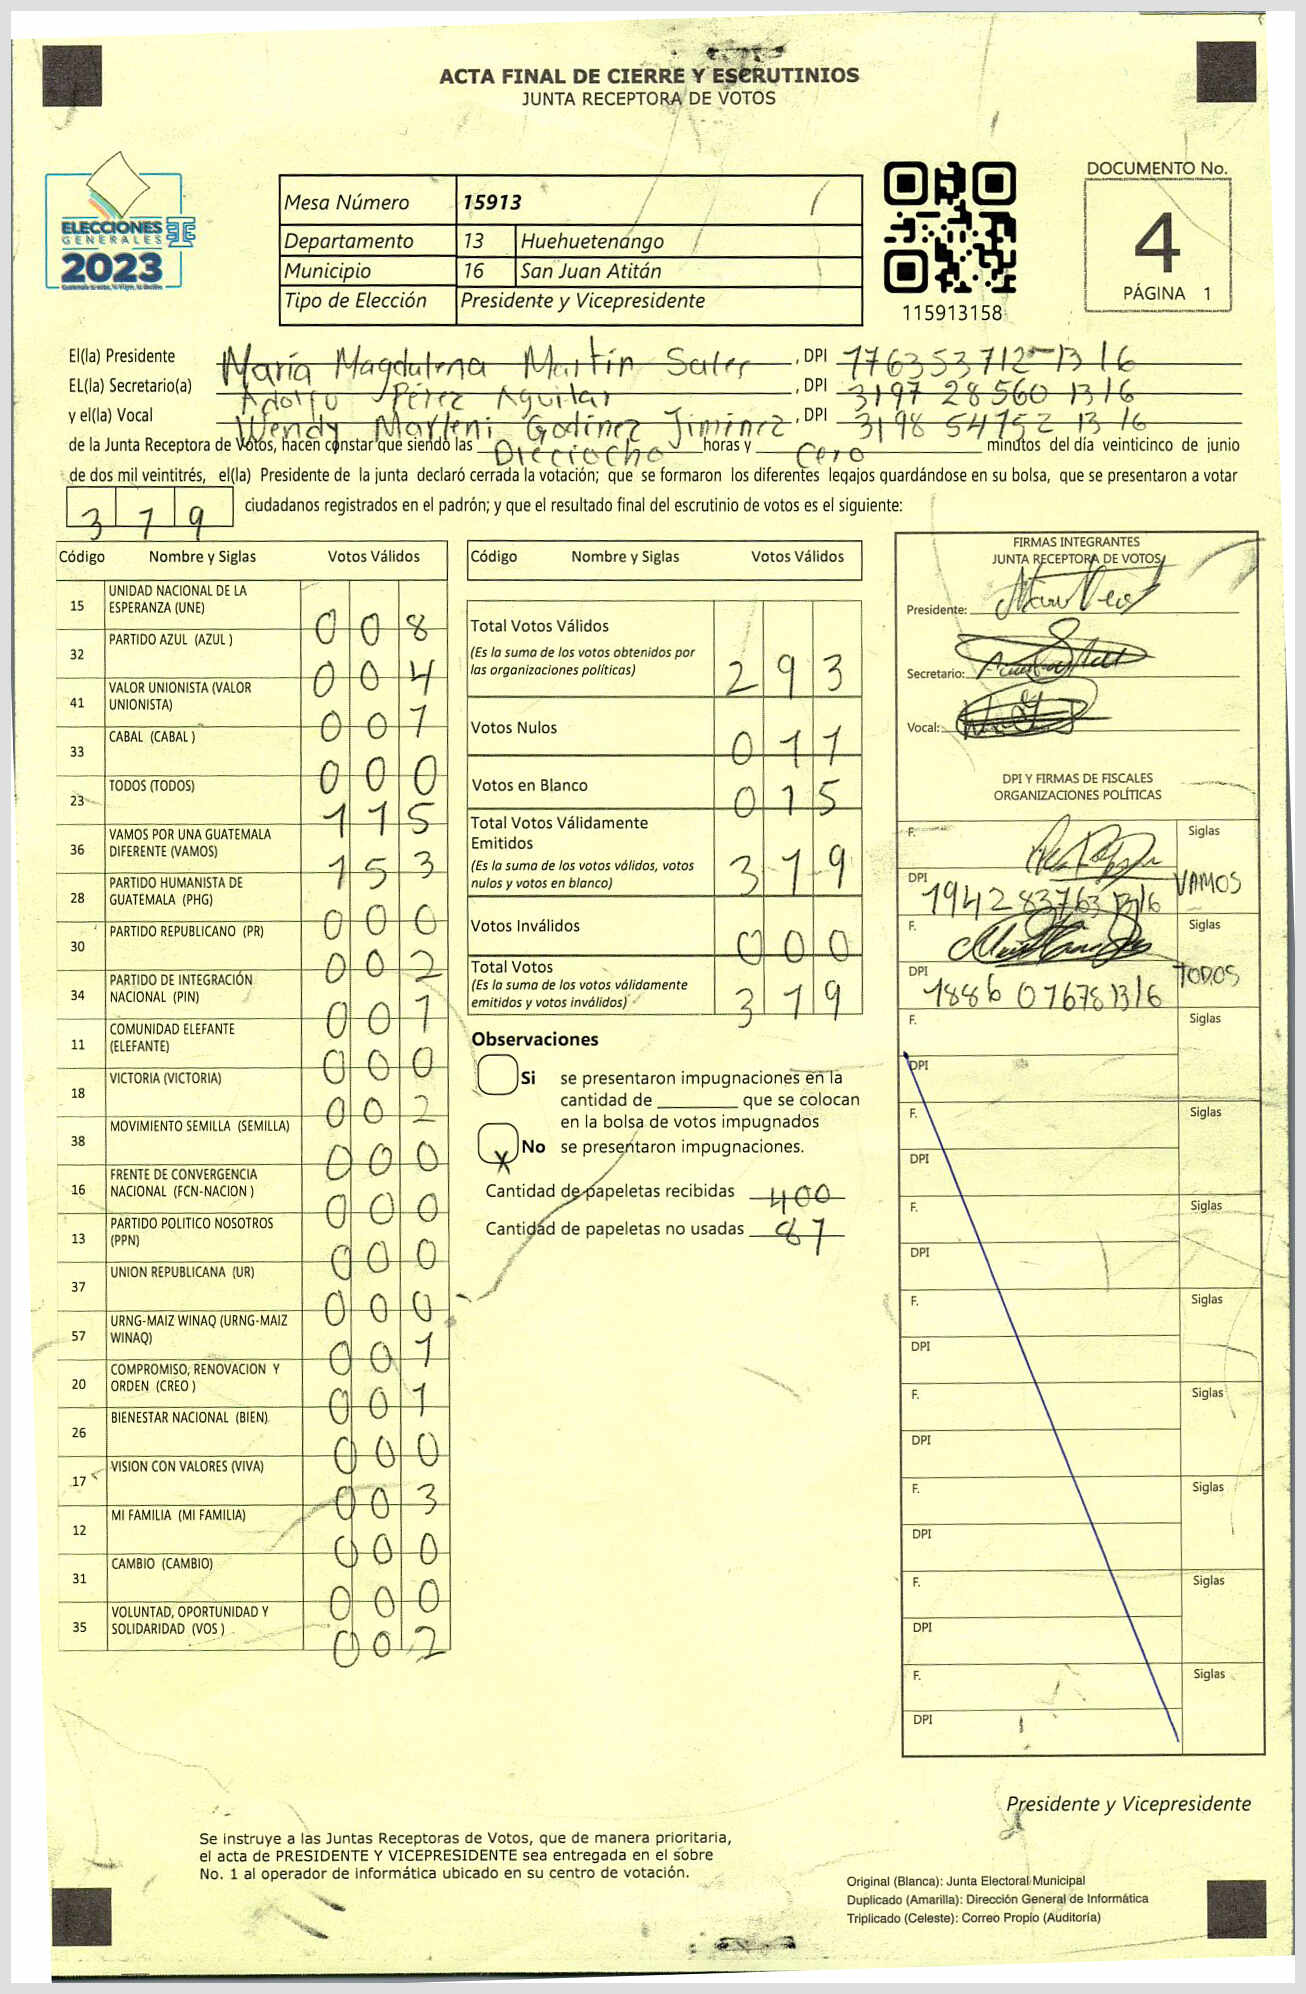 ACTA FINAL DE CIERRE Y ESCRUTINIOS
JUNTA RECEPTORA DE VOTOS
ELECCIONES
GENERALES
2023
Mesa Número 15913
Departamento 13 Huehuetenango
Municipio 16 San Juan Atitán
Tipo de Elección Presidente y Vicepresidente
115913158
DOCUMENTO No.
4
PÁGINA 1
El(la) Presidente María Magdalena Martín Sales, DPI 176353712-1316
EL(la) Secretario(a) Adolfo Pérez Aguilar, DPI 3197 28560 1316
y el(la) Vocal Wendy Marleni Godinez Jiminez, DPI 3198 54752 1316
de la Junta Receptora de Votos, hacen constar que siendo las Dieciocho horas y Cero minutos del día veinticinco de junio
de dos mil veintitrés, el(la) Presidente de la junta declaró cerrada la votación; que se formaron los diferentes legajos guardándose en su bolsa, que se presentaron a votar
3 1 9 ciudadanos registrados en el padrón; y que el resultado final del escrutinio de votos es el siguiente:
Código Nombre y Siglas Votos Válidos
15 UNIDAD NACIONAL DE LA ESPERANZA (UNE) 0 0 8
32 PARTIDO AZUL (AZUL ) 0 0 4
41 VALOR UNIONISTA (VALOR UNIONISTA) 0 0 1
33 CABAL (CABAL ) 0 0 0
23 TODOS (TODOS) 1 1 5
36 VAMOS POR UNA GUATEMALA DIFERENTE (VAMOS) 1 5 3
28 PARTIDO HUMANISTA DE GUATEMALA (PHG) 0 0 0
30 PARTIDO REPUBLICANO (PR) 0 0 2
34 PARTIDO DE INTEGRACIÓN NACIONAL (PIN) 0 0 1
11 COMUNIDAD ELEFANTE (ELEFANTE) 0 0 0
18 VICTORIA (VICTORIA) 0 0 2
38 MOVIMIENTO SEMILLA (SEMILLA) 0 0 0
16 FRENTE DE CONVERGENCIA NACIONAL (FCN-NACION ) 0 0 0
13 PARTIDO POLITICO NOSOTROS (PPN) 0 0 0
37 UNION REPUBLICANA (UR) 0 0 0
57 URNG-MAIZ WINAQ (URNG-MAIZ WINAQ) 0 0 1
20 COMPROMISO, RENOVACION Y ORDEN (CREO ) 0 0 1
26 BIENESTAR NACIONAL (BIEN) 0 0 0
17 VISION CON VALORES (VIVA) 0 0 3
12 MI FAMILIA (MI FAMILIA) 0 0 0
31 CAMBIO (CAMBIO) 0 0 0
35 VOLUNTAD, OPORTUNIDAD Y SOLIDARIDAD (VOS ) 0 0 2
Código Nombre y Siglas Votos Válidos
Total Votos Válidos 2 9 3
(Es la suma de los votos obtenidos por
las organizaciones políticas)
Votos Nulos 0 1 1
Votos en Blanco 0 1 5
Total Votos Válidamente
Emitidos 3 1 9
(Es la suma de los votos válidos, votos
nulos y votos en blanco)
Votos Inválidos 0 0 0
Total Votos 3 1 9
(Es la suma de los votos válidamente
emitidos y votos inválidos)
Observaciones
Si se presentaron impugnaciones en la
cantidad de ________ que se colocan
en la bolsa de votos impugnados
X No se presentaron impugnaciones.
Cantidad de papeletas recibidas 400
Cantidad de papeletas no usadas 81
FIRMAS INTEGRANTES
JUNTA RECEPTORA DE VOTOS
Presidente:
Secretario:
Vocal:
DPI Y FIRMAS DE FISCALES
ORGANIZACIONES POLÍTICAS
F. Siglas
DPI 1942 83763 1316 VAMOS
F. Siglas
DPI 1886 07678 1316 TODOS
F. Siglas
DPI
F. Siglas
DPI
F. Siglas
DPI
F. Siglas
DPI
F. Siglas
DPI
F. Siglas
DPI
F. Siglas
DPI
F. Siglas
DPI
Presidente y Vicepresidente
Se instruye a las Juntas Receptoras de Votos, que de manera prioritaria,
el acta de PRESIDENTE Y VICEPRESIDENTE sea entregada en el sobre
No. 1 al operador de informática ubicado en su centro de votación.
Original (Blanca): Junta Electoral Municipal
Duplicado (Amarilla): Dirección General de Informática
Triplicado (Celeste): Correo Propio (Auditoría)